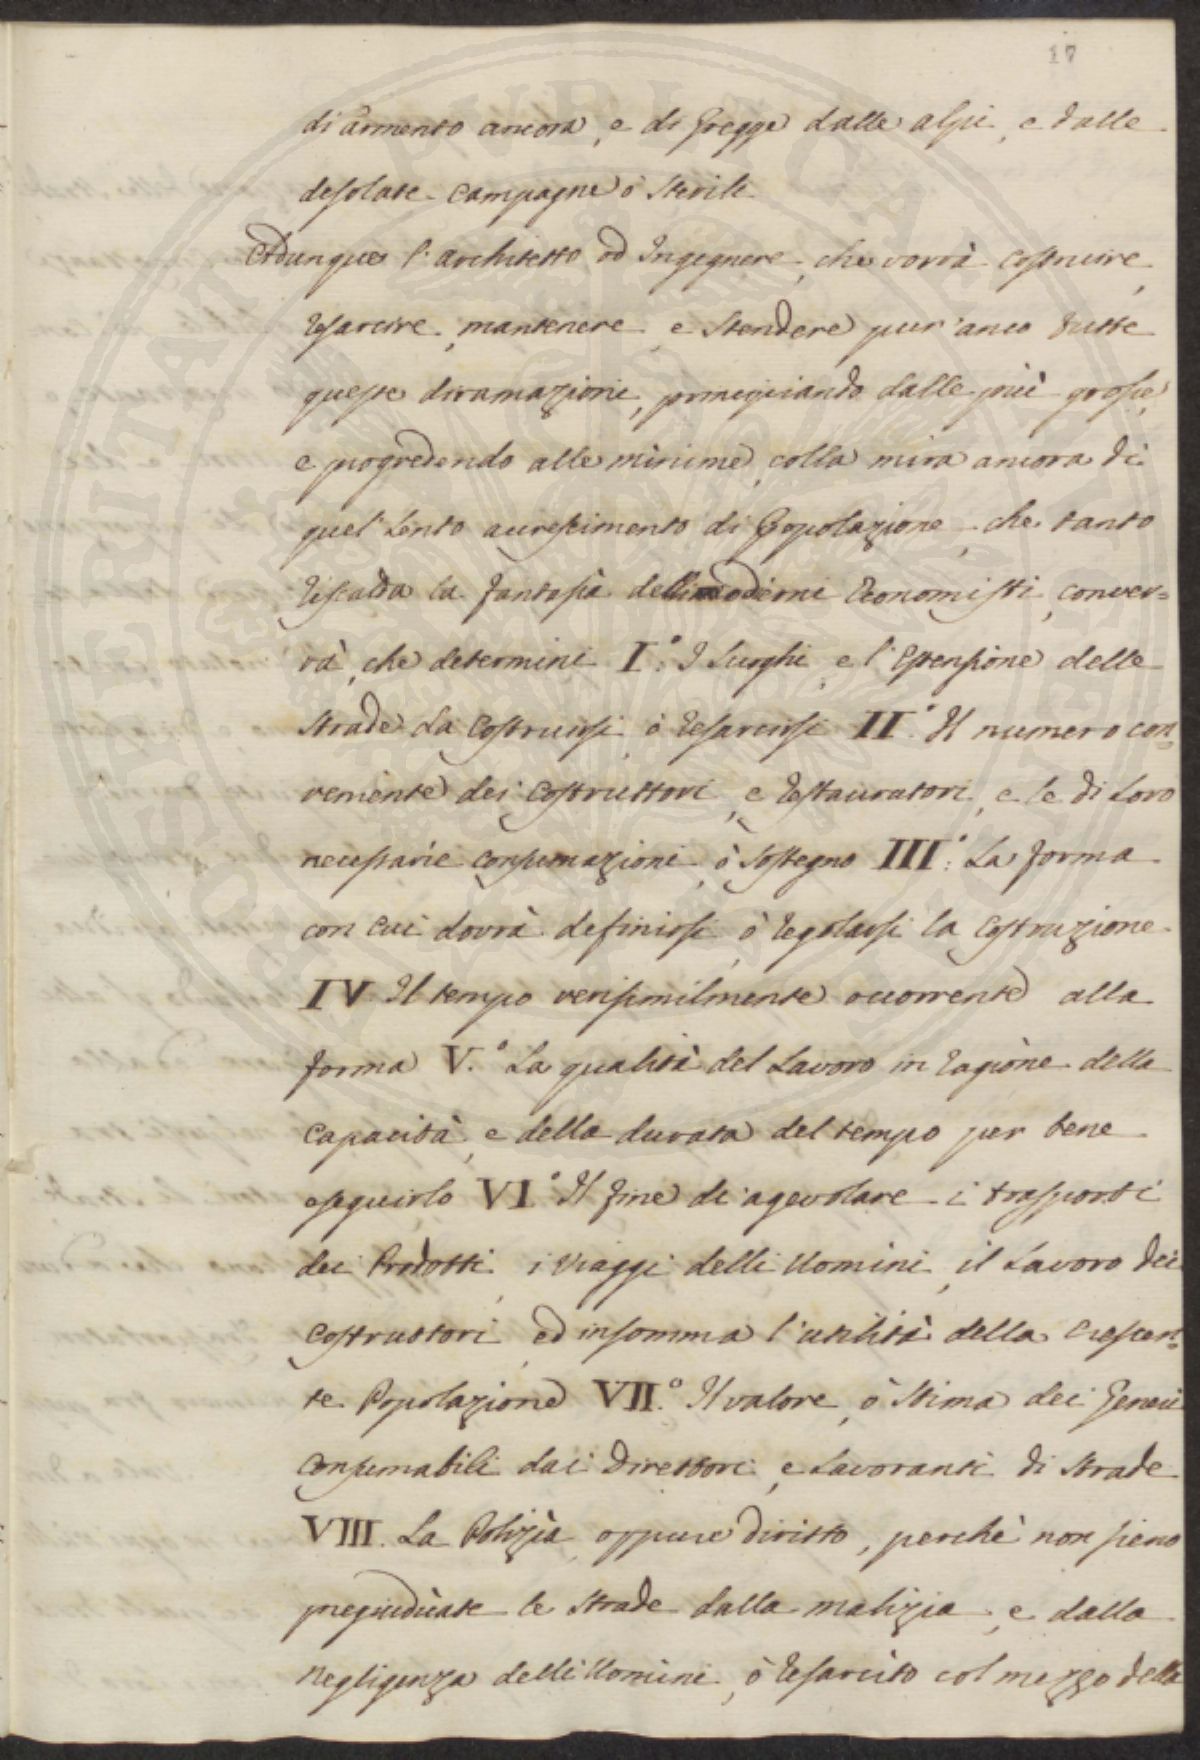 17
di armento ancora, e di gregge dalle alpi, e dalle
desolate campagne ò sterili
Adunque l'architetto od Ingegnere, che vorrà costruire,
resarcire, mantenere, e stendere pur'anco tutte
queste diramazioni, principiando dalle più grosse,
e progredendo alle minime, colla mira ancora di
quel lento accrescimento di Popolazione, che tanto
riscalda la fantasia delli moderni Economisti, conver=
rà, che determini I.° I Luoghi, e l'estensione delle
strade da costruirsi, ò resarcirsi II.° Il numero con=
veniente dei costruttori, e restauratori, e le di loro
necessarie consumazioni, ò sostegno III.° La forma
con cui dovrà definirsi, ò regolarsi la costruzione
IV Il tempo verisimilmente occorrente alla
forma V.° La qualità del Lavoro in ragione della
capacità, e della durata del tempo per bene
eseguirlo VI° Il fine di agevolare i trasporti
dei Prodotti, i viaggi delli Uomini, il Lavoro dei
costruttori, ed insomma l'utilità della crescen=
te Popolazione VII.° Il valore, ò stima dei generi
consumabili dai Direttori, e Lavoranti di strade
VIII. La Polizia, oppure diritto, perchè non sieno
pregiudicate le strade dalla malizia, e dalla
negligenza delli Uomini, ò resarcito col mezzo della